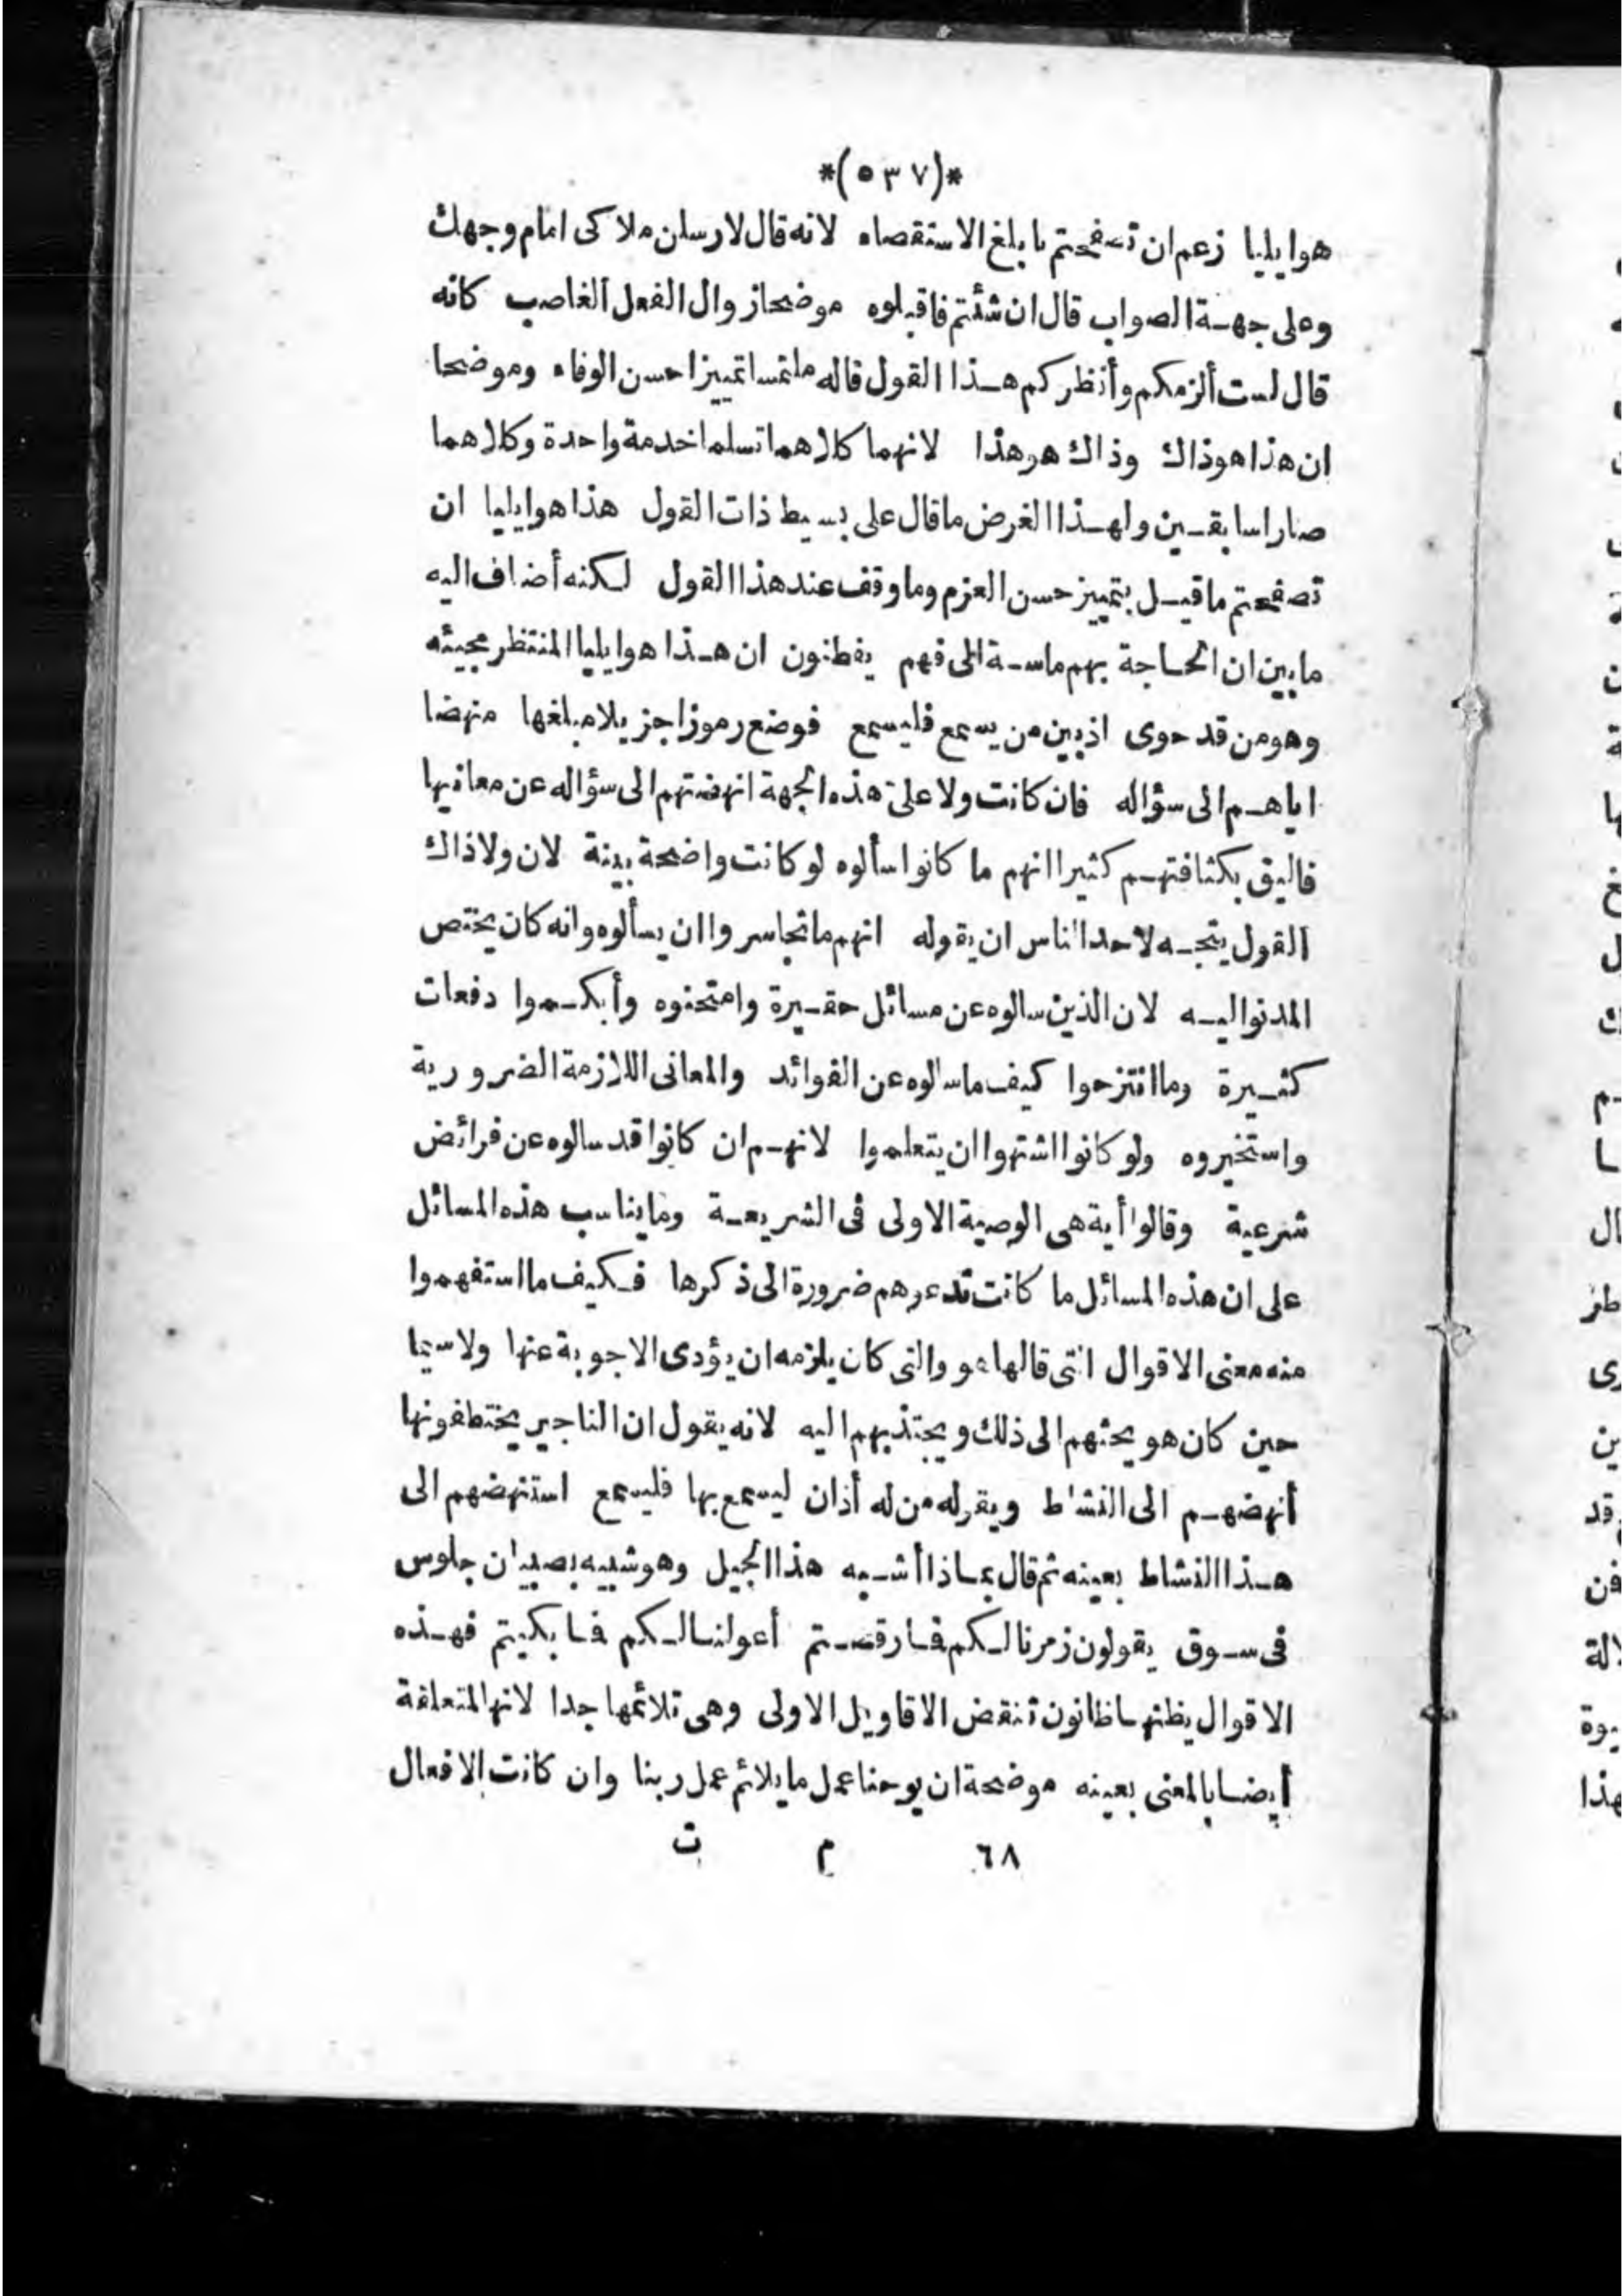 *(٥٣٧)*
هو ايليا زعم ان تصفحتم بابلغ الاستقصاء لانه قال لارسلن ملاكى امام وجهك
وعلى جهة الصواب قال ان شئتم فاقبلوه موضحا زوال الفعل الغاصب كانه
قال لست ألزمكم وأنظركم هذا القول قاله ملتمسا تمييزا حسن الوفاء وموضحا
ان هذا هو ذاك وذاك هو هذا لانهما كلاهما تسلما خدمة واحدة وكلاهما
صارا سابقين ولهذا الغرض ما قال على بسيط ذات القول هذا هو ايليا ان
تصفحتم ما قيل بتمييز حسن العزم وما وقف عند هذا القول لكنه أضاف اليه
ما بين ان الحاجة بهم ماسة الى فهم يفطنون ان هذا هو ايليا المنتظر مجيئه
وهو من قد حوى اذبين من يسمع فليسمع فوضع رموزا جزيلا مبلغها منهضا
اياهم الى سؤاله فان كانت ولا على هذه الجهة انهضتهم الى سؤاله عن معانيها
فاليق بكثافتهم كثيرا انهم ما كانوا سألوه لو كانت واضحة بينة لان ولا ذاك
القول يتجه لاحد الناس ان يقوله انهم ما تجاسروا ان يسألوه وانه كان يختص
المدنو اليه لان الذين سالوه عن مسائل حقيرة وامتحنوه وأبكموا دفعات
كثيرة وما انتزحوا كيف ما سالوه عن الفوائد والمعانى اللازمة الضرورية
واستخبروه ولو كانوا اشتهوا ان يتعلموا لانهم ان كانوا قد سالوه عن فرائض
شرعية وقالوا أية هى الوصية الاولى فى الشريعة وما يناسب هذه المسائل
على ان هذه المسائل ما كانت تدعوهم ضرورة الى ذكرها فكيف ما استفهموا
منه معنى الاقوال التى قالها هو والتى كان يلزمه ان يؤدى الاجوبة عنها ولا سيما
حين كان هو يحثهم الى ذلك ويجتذبهم اليه لانه يقول ان الناجير يختطفونها
أنهضهم الى النشاط وبقوله من له أذان ليسمع بها فليسمع استنهضهم الى
هذا النشاط بعينه ثم قال بماذا أشبه هذا الجيل وهو شبيه بصبيان جلوس
فى سوق يقولون زمرنا لكم فما رقصتم أعولنا لكم فما بكيتم فهذه
الاقوال يظنها ظانون تنقض الاقاويل الاولى وهى تلائمها جدا لانها لمتعلقة
أيضا بالمعنى بعينه موضحة ان يوحنا عمل ما يلائم عمل ربنا وان كانت الافعال
٦٨ م ت